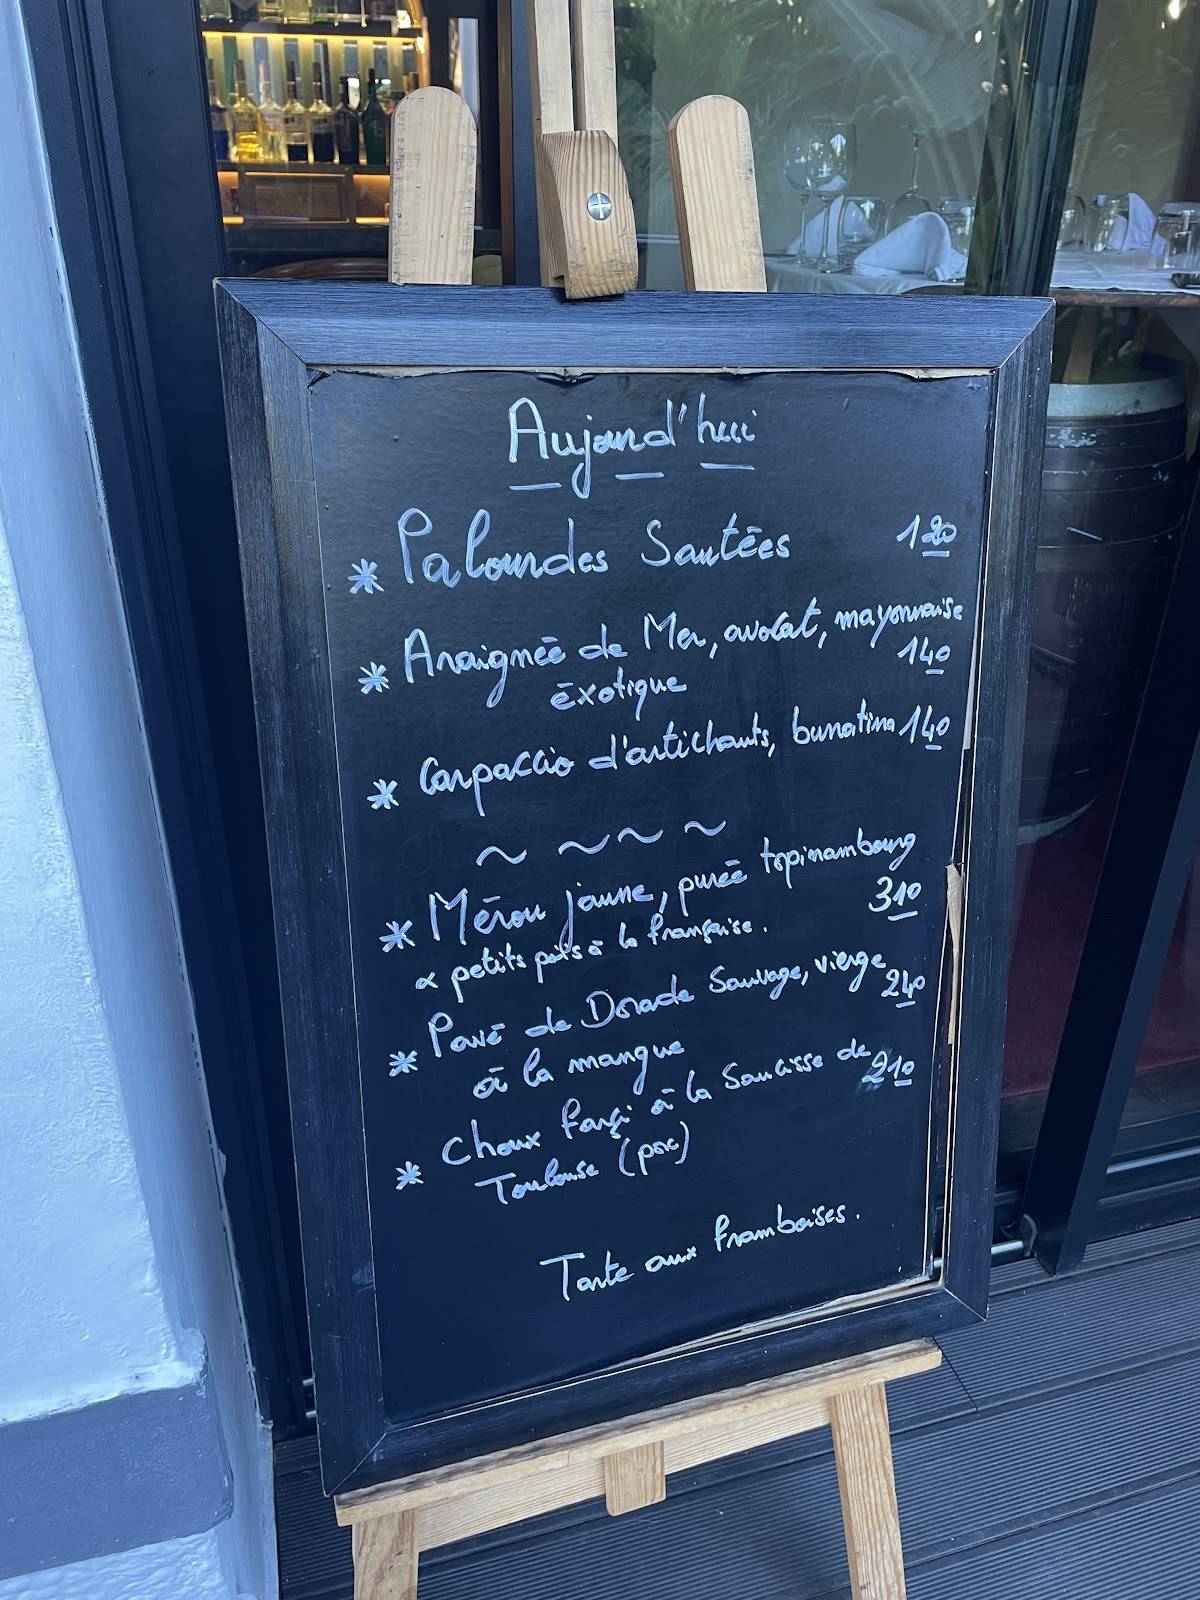 Aujourd'hui
* Palourdes Sautées 120
* Araignée de Mer, avocat, mayonnaise
éxotique 140
* Carpaccio d'artichauts, burratina 140
~ ~ ~ ~
* Mérou jaune, purée topinambourg
& petits pois à la française. 310
* Pavé de Dorade Sauvage, vierge
à la mangue 240
* Choux farçi à la Saucisse de
Toulouse (porc) 210
Tarte aux framboises.